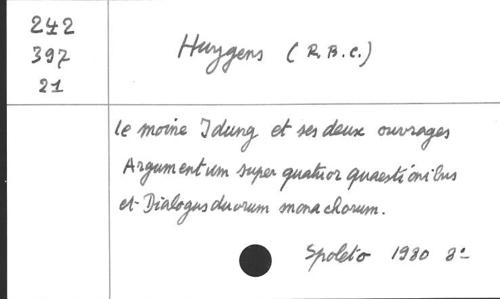 242
397
21
Huygens (R.B.C.)
le moine Idung et ses deux ouvrages
Argumentum super quatuor quaestionibus
et Dialogus duorum monachorum.
Spoleto 1980 8°